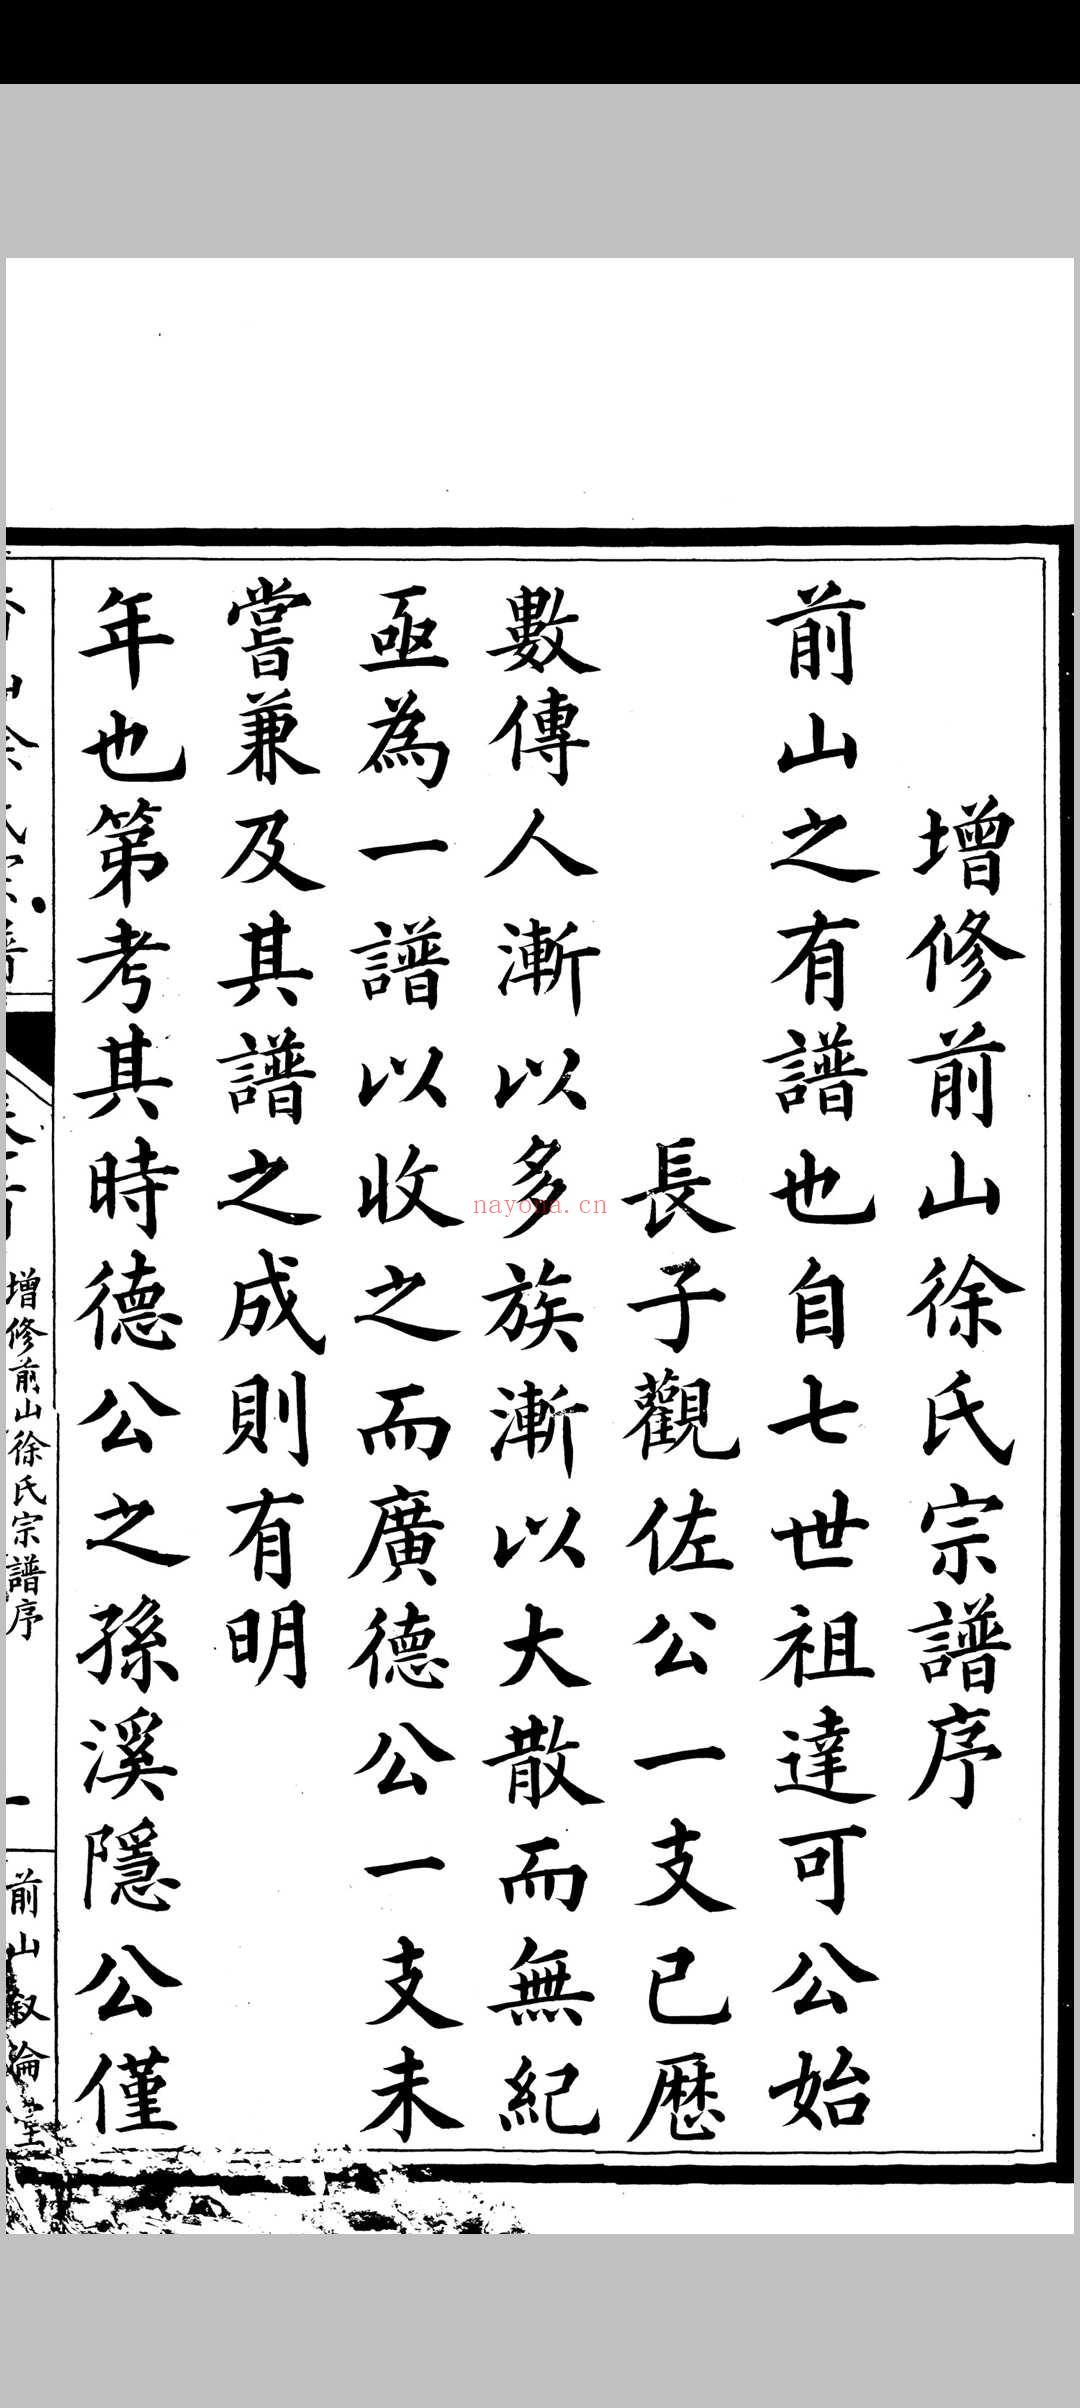 增修前山徐氏宗譜序
前山之有譜也自七世祖達可公始
長子觀佐公一支已歷
數傳人漸以多族漸以大散而無紀
亟為一譜以收之而廣德公一支未
嘗兼及其譜之成則有明
年也第考其時德公之孫溪隱公僅
增修前山徐氏宗譜序
一
前山敘倫堂
nayona.cn